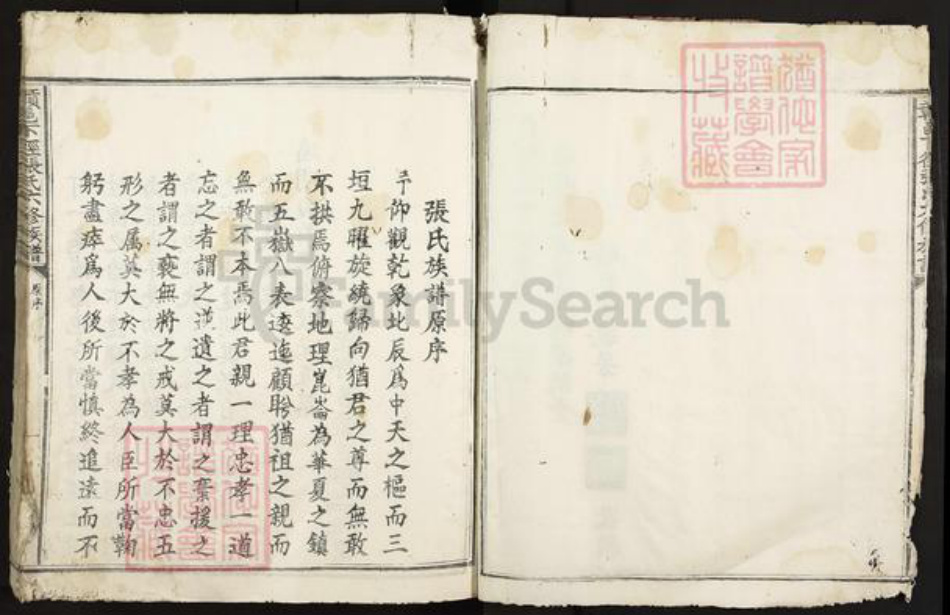 張氏族譜原序
予仰觀乾象北辰爲中天之樞而三
垣九曜旋繞歸向猶君之尊而無敢
不拱焉俯察地理崑崙為華夏之鎮
而五嶽八表逶迤顧盻猶祖之親而
無敢不本焉此君親一理忠孝一道
忘之者謂之逆遺之者謂之棄援之
者謂之褻無將之戒莫大於不忠五
形之属莫大於不孝為人臣所當鞠
躬盡瘁爲人後所當慎終追遠而不
張氏六修族譜
原序
猶他家
譜學會
收藏
猶他家
譜學會
收藏
FamilySearch